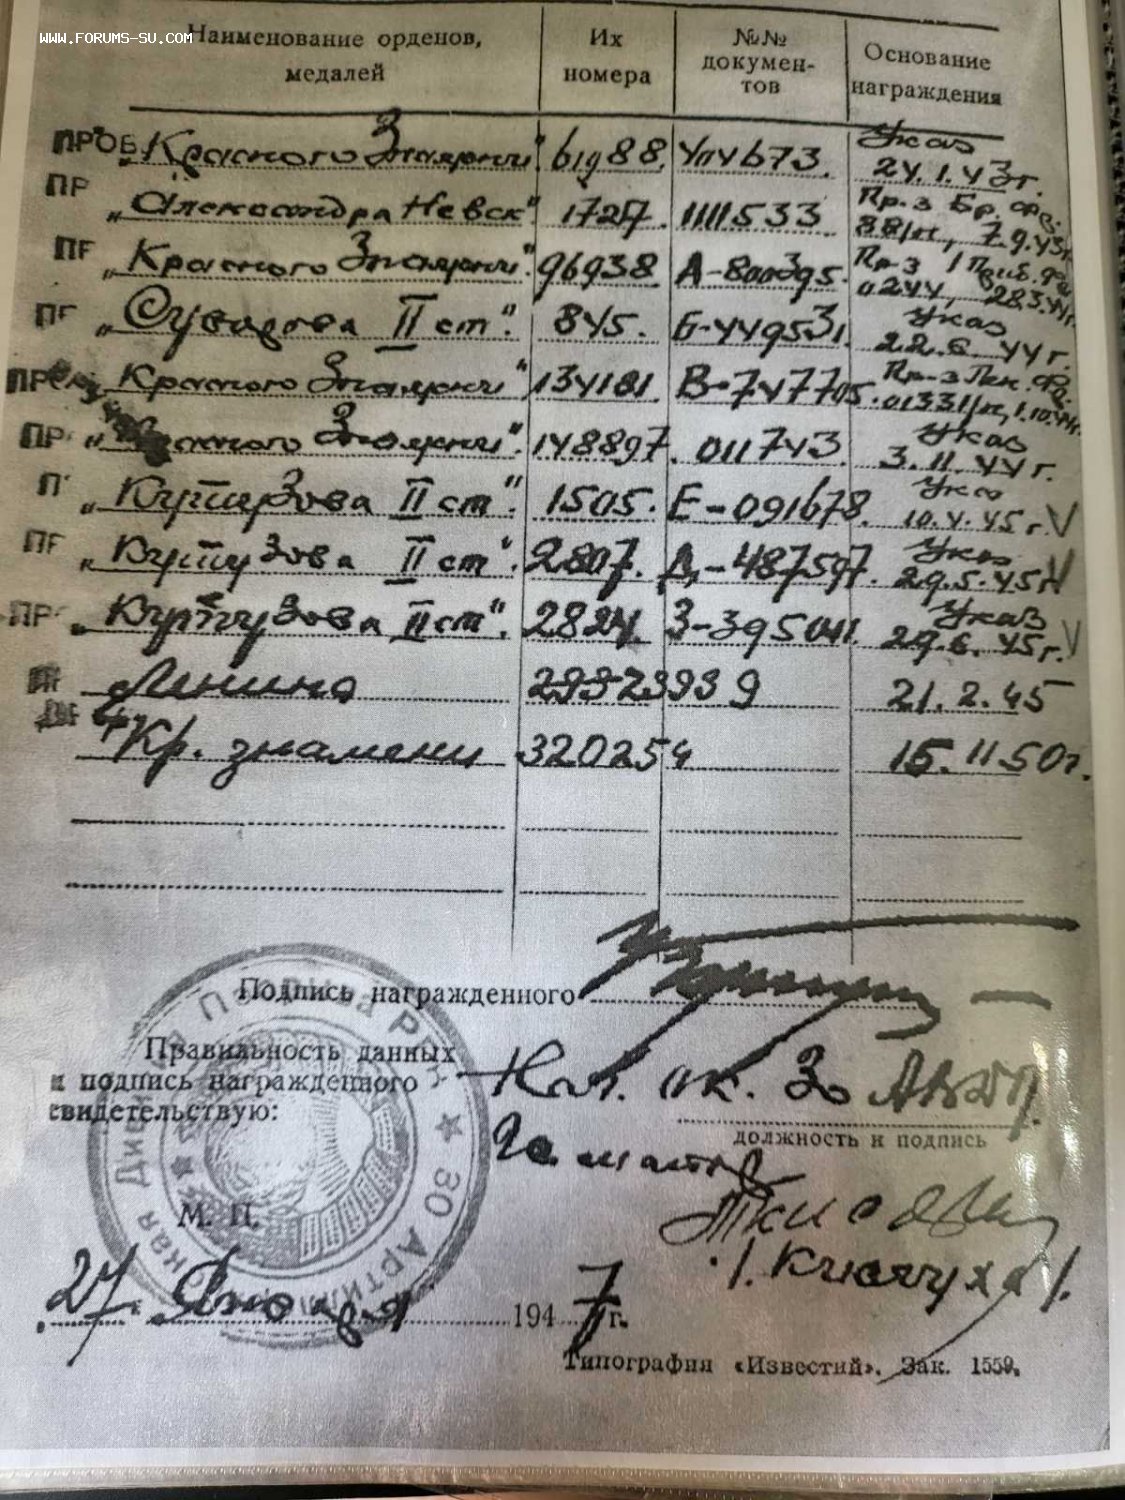 WWW.FORUMS-SU.COM
Наименование орденов, медалей
Их номера
№№ документов
Основание награждения
ПРОВ "Красного Знамени" 61988. 414673. Указ 24.1.43г.
ПР "Александра Невск" 1727. 1111533 Пр-з Бр. фр. 88/н, 7.9.43г
ПР "Красного Знамени" 96938 А-800395. Пр-з 1 Приб. фр 0244, 28.3.44г.
ПР "Суворова II ст". 845. Б-449531. Указ 22.6.44г.
ПР "Красного Знамени" 134181. В-747705. Пр-з Лен. фр. 01331/н, 1.10.44г.
ПР "Красного Знамени". 148897. 011743. Указ 3.11.44г.
П "Кутузова II ст" 1505. Е-091678. Указ 10.4.45г. V
ПР "Кутузова II ст". 2807. Д-487597. Указ 29.5.45г V
ПР "Кутузова II ст". 2824. З-395041. Указ 29.6.45г. V
Ленина 21.2.45
Кр. знамени 320254 15.11.50г.
Подпись награжденного
Правильность данных
и подпись награжденного
свидетельствую:
Нач. ок. 30
должность и подпись
М. П.
/Кислуха/.
27. Января 1947 г.
Типография «Известий». Зак. 1559.